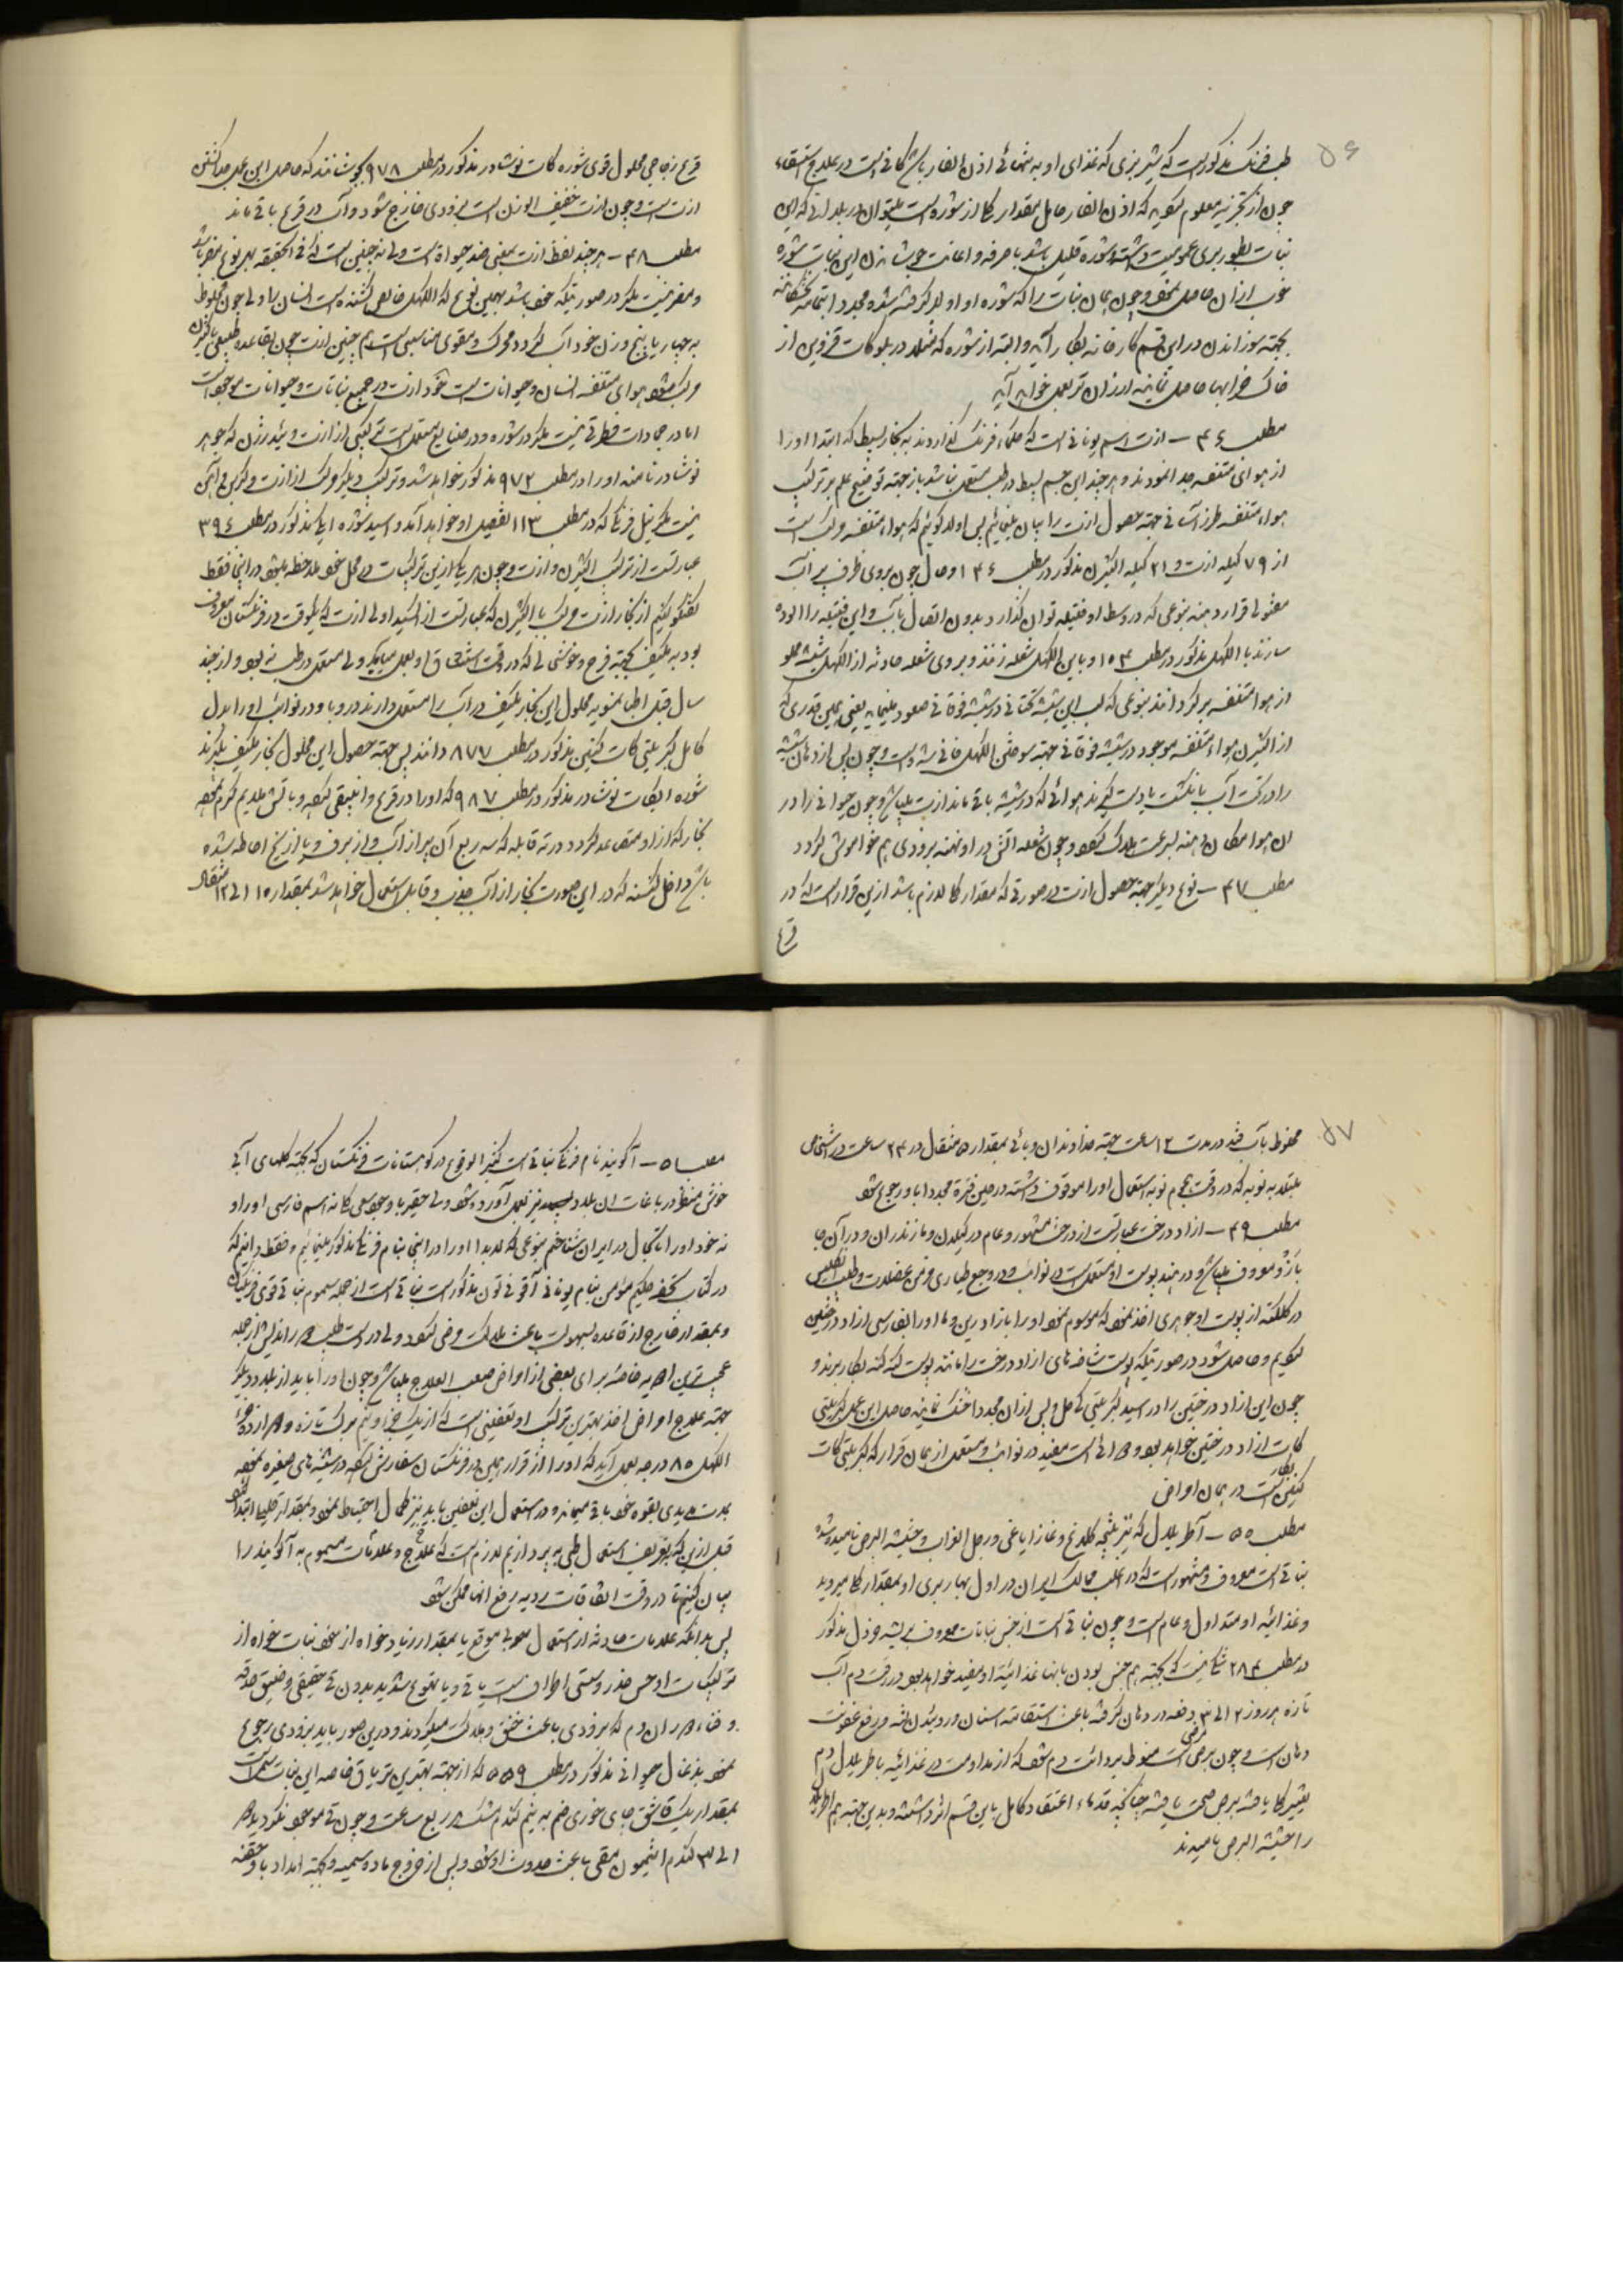 ۵۶
طب فرنک مذکور است که شیر بزی که غذای او به تنهائی اذن الفار باشد کافی است در علاج استسقاء
چون از تجزیه معلوم که اذن الفار حامل مقدار از شوره است میتوان در بلدانی که این
نبات بطور بری عمومیت داشته و شوره قلیل باشد با صرفه و اعانت جوشانیدن این نبات شوره
خوب از آن حاصل نمود و چون همان نبات را که شوره او اولا گرفته شده مجدد
بجهة سوزاندن در این قسم کارخانه بکار آید و البته از شوره که مثلا در بلوکات قزوین از
خاک خرابها حاصل نمایند ارزان تر بعمل خواهد آمد
مطلب ۴۶ – ازت اسم یونانی است که حکماء فرنک گذاردند به بخار بسیط که ابتدا او را
از هوای متنفسه جدا نمودند و هرچند این جسم بسیط در طب مستعمل نباشد باز جهة توضیح علم بر ترکیب
هواء متنفسه طرز آسانی جهة حصول ازت را بیان مینمائیم پس اولا گوئیم که هواء متنفسه مرکب است
از ۷۹ کیله ازت و ۲۱ کیله اکثیژن مذکور در مطلب ۱۳۶ و حال چون بروی ظرف پر آب
مفتولی قرار دهند بنوعی که در وسط او فتیله توان گذارد بدون اتصال بآب و این فتیله را آلوده
سازند با الکهل مذکور در مطلب ۱۵۳ و باین الکهل شعله زنند و بروی شعله حادثه از الکهل شیشه مملو
از هوا متنفسه برگردانند بنوعی که لب این شیشه تحتانی در شیشه فوقانی صعود مینماید یعنی همین قدری که
از اکثیژن هواء متنفسه موجود در شیشه فوقانی جهة سوختن الکهل فانی شده است و چون پس از دهان شیشه
را در تحت آب با انگشت یا دست گیرند هوائی که در شیشه باقی ماند ازت میباشد و چون حیوانی را در
ان هوا مکان دهند بسرعت هلاک شود و چون شعله آتش در او نهند بزودی هم خواموش گردد
مطلب ۴۷ – نوع دیگر جهة حصول ازت در صورتی که مقدار کلی لازم باشد ازین قرار است که در
قرع
قرع زجاجی محلول قوی شوره کات نوشادر مذکور در مطلب ۹۷۸ بجوشانند که حاصل این عمل جدا گشتن
ازت است و چون ازت خفیف الوزن است بزودی خارج شود و آب در قرع باقی ماند
مطلب ۴۸ – هرچند لفظ ازت بمعنی ضد حیواة است ولی نه چنین است که فی الحقیقه بهر نوع مضر باشد
و مضر نیست مگر در صورتیکه خالص باشد بهمین نوع که الکهل خالص کشنده است انسان را ولی چون مخلوط
به چهار یا پنج وزن خود آب گردد محرک و مقوی مناسبی است هم چنین ازت چون بقاعده طبیعی با اکثیژن
مرکب شود هوای متنفسه انسان و حیوانات است ازت در جمیع نباتات و حیوانات موجود است
اما در جمادات فطرتی نیست مگر در شوره و در صنایع مستعمل است ترکیبی از ازت و ئیدرژن که جوهر
نوشادر نامند او را در مطلب ۹۷۲ مذکور خواهد شد و ترکیب دیگر مرکب از ازت و کربن و آهن
نیست مگر نیل فرنگی که در مطلب ۱۱۳ تفصیل او خواهد آمد و اسید شوره ایکه مذکور در مطلب ۳۹۴
عبارتست از ترکیب اکثیژن و ازت و چون هر یک ازین ترکیبات در محل خود ملاحظه میشود در اینجا فقط
گفتگو کنیم از بخار ازت مرکب با اکثیژن که عبارتست از اکسید اولی ازت که یکوقت در فرنکستان معروف
بود به مکیف بجهة فرح و خوشی که در وقت استنشاق او بعمل میآید ولی مستعمل در طب نبود و از چند
سال قبل اطباء نمسویه محلول این بخار مکیف در آب را مستعمل دارند در وبا و در نوائب او را بدل
کامل کبریتی کات کنین مذکور در مطلب ۸۷۷ دانند پس جهة حصول این محلول بخار مکیف بگیرند
شوره ایکات نوشادر مذکور در مطلب ۹۸۷ که او را در قرع و انبیقی نموده و باتش ملایم گرم نموده
بخار که از او متصاعد گردد در ته قابله که سه ربع آن پر از آب و از برف و یا از یخ احاطه شده
باشد داخل کنند که در این صورت بخار از آب جذب و قابل استعمال خواهد شد بمقدار ۱۵ الی ۱۲ مثقال
۵۷
مخلوط بآب قند در مدت ۱۲ ساعت جهة خداوندان وبائی بمقدار ۵ مثقال در ۲۴ ساعت در اشخاص
مبتلا به نوبه که در وقت هجوم نوبه استعمال او را موقوف داشته در حین فترة مجددا باو رجوع شود
مطلب ۴۹ – ازاد درخت عبارتست از درخت مشهور و عام در گیلان و مازندران و در آن جا
بآزدو معروف میباشد و در هند پوست او مستعمل است در نوائب و در وجع طیاری و مزمن عضلات و طبیب انگلیس
در کلکته از پوست او جوهری اخذ نموده که موسوم نمود او را بازادرین و ما او را بفارسی ازاد درختین
گوئیم و حاصل شود در صورتیکه پوست شاخه های ازاد درخت را مانند پوست گنه گنه بکار برند و
چون این ازاد درختین را در اسید کبریتی حل و پس از آن مجددا خشک نمایند حاصل این عمل کبریتی
کات ازاد درختین خواهد بود و دوائی است مفید در نوائب و مستعمل از همان قرار که کبریتی کات
کنین بکار است در همان امراض
مطلب ۵۰ – آطریلال که نیز پنجه کلاغ و غازایاغی و رجل الغراب و حشیشة البرص نامیده شده
نباتی است معروف و مشهور است که در اغلب ممالک ایران در اول بهار بری او بمقدار کلی میروید
و غذائیه او متداول و عام است و چون نباتی است از جنس نباتات معروف بریشه خردل مذکور
در مطلب ۲۸۴ شکی نیست که بجهة هم جنس بودن بآنها غذائیة او مفید خواهد بود در رقت دم آب
تازه هر روز ۲ الی ۳ دفعه در دهان گرفته باعث استقامة اسنان و روئیدن لثه و رفع عفونت
دهان است و چون برص مرضی است منوط بردائت دم شود که از مداومت در غذائیه باطریلال دم
تغییر کلی یافته برص صحت یافته چنانکه قدماء اعتقاد کامل باین قسم اثر داشته و بدین جهة هم اطریلال
را حشیشة البرص نامیدند
مطلب ۵۱ – آکونیند نام فرنگی نباتی است کثیر الوقوع در کوهستانات فرنکستان که بجهة گلهای آبی
خوش منظر در باغات ان بلاد نیز بعمل آورده شود ولی حقیر با وجود سعی کامل نه اسم فارسی او را و
نه خود او را تا بحال در ایران شناختم بنوعی که لابدا او را در اینجا بنام فرنگی مذکور مینمائیم و فقط دانیم که
در کتاب تحفه حکیم مؤمن بنام یونانی آقونی تون مذکور است نباتی است از جمله سموم نباتی قوی فرنکیان
و بمقدار خارج از قاعده بسهولت باعث هلاکت مرضی شود ولی در دست طبیب دانشمند از جمله
عجب ترین ادویه خاصه برای بعضی از امراض صعب العلاج میباشد و چون او را باید از بلاد دیگر
جهة علاج امراض اخذ بهترین ترکیب او تعفینی است که از یک جزء و نیم برک تازه و ۱۰ جزء
الکهل ۸۵ درجه بعمل آید که او را از قرار همین در فرنکستان سفارش نموده در شیشه های صغیره نموده
بمدت مدیدی بقوه خود باقی میماند و در استعمال این تعفین باید نیز کمال احتیاط نمود و بمقدار قلیله ابتدا نمود
قبل ازین که بتعریف استعمال طبی به پردازیم لازم است که علاج و علامات مسموم به آکونیند را
بیان کنیم تا در وقت اتفاقات ردیه رفع انها ممکن شود
پس بدانکه علامات حادثه از استعمال بی موقع یا بمقدار زیاد خواه از خود نبات خواه از
ترکیبات او حس خدر و سستی اطراف است با قی و یا تهوع شدید بدون قی حقیقی و ضیق حدقه
و فساد دوران دم که بزودی باعث خنق و هلاکت میگردند و درین صور باید بزودی رجوع
نمود بذغال حیوانی مذکور در مطلب ۵۵۹ که از جهة بهترین تریاق خاصه این نبات سم است
بمقدار یک قاشق چای خوری ضم به نیم گندم مشک هر ربع ساعت و چون قی موجود نگردید
۱ الی ۳ گندم انتیمون مقی باعث حدوث او شود و پس از خروج ماده سمیه و بجهة امداد باو حقنه